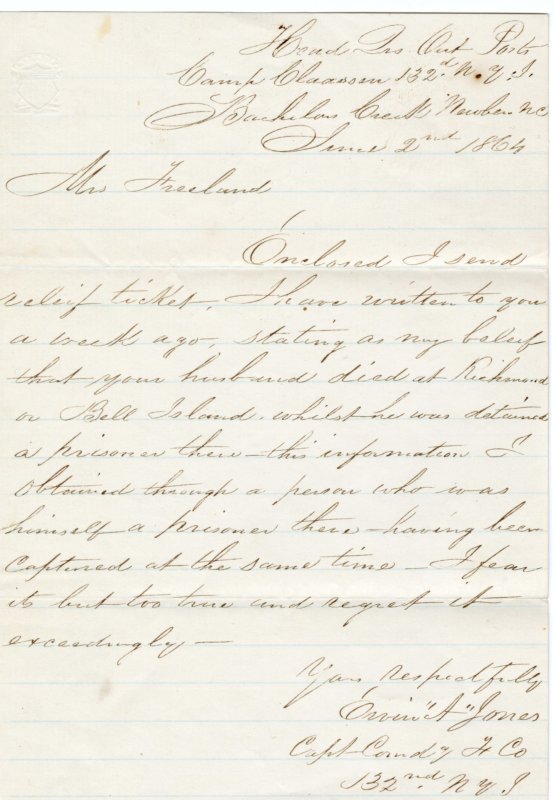 Head Qrs. Out Posts
Camp Claassen 132d N.Y.I.
Bachelors Creek Newbern NC
June 2nd 1864
Mrs Freeland
Enclosed I send
releif ticket, I have written to you
a week ago, stating as my beleif
that your husband died at Richmond
or Bell Island. whilst he was detained
a prisoner there – this information I
obtained through a person who was
himself a prisoner there – having been
captured at the same time – I fear
its but too true and regret it
exceedingly –
Yours respectfully
Ervin "A" Jones
Capt Comdg F Co
132nd N Y I